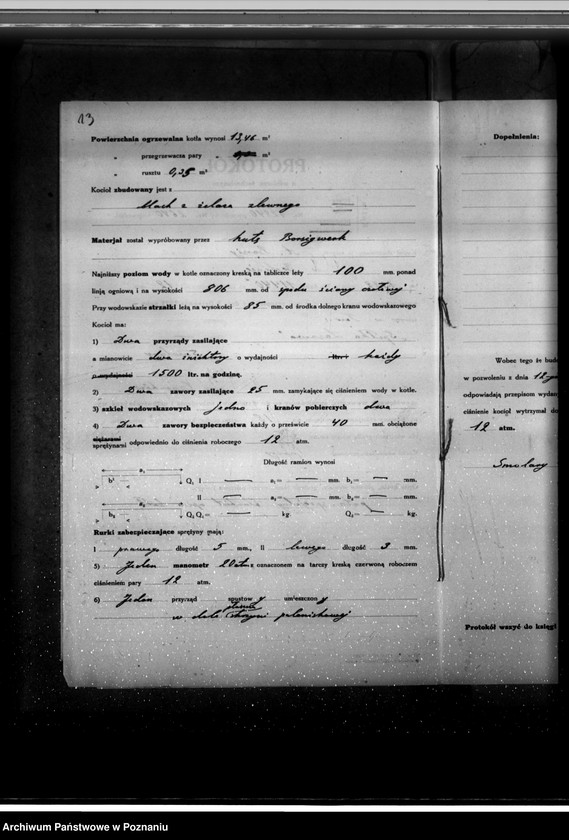 13
Powierzchnia ogrzewalna kotła wynosi 13,46 m²
„ przegrzewacza pary „ m²
„ rusztu 0,35 m²
Kocioł zbudowany jest z
blach z żelaza zlewnego
Materjał został wypróbowany przez hutę Borsigwerk
Najniższy poziom wody w kotle oznaczony kreską na tabliczce leży 100 mm. ponad
linją ogniową i na wysokości 806 mm. od spodu ściany
Przy wodowskazie strzałki leżą na wysokości 85 mm. od środka dolnego kranu wodowskazowego
Kocioł ma:
1) Dwa przyrządy zasilające
a mianowicie dwa inżektory o wydajności każdy
o wydajności 1500 ltr. na godzinę.
2) Dwa zawory zasilające 25 mm. zamykające się ciśnieniem wody w kotle.
3) szkieł wodowskazowych jedno i kranów pobierczych dwa
4) Dwa zawory bezpieczeństwa każdy o prześwicie 40 mm. obciążone
ciężarami
sprężynami odpowiednio do ciśnienia roboczego 12 atm.
Długość ramion wynosi
a₁ b¹ Q₁ I a₁= mm. b₁= mm.
II a₂= mm. b₂= mm.
a₂ b₂ Q₂ Q₁= kg. Q₂= kg.
Rurki zabezpieczające sprężyny mają:
I prawego długość 5 mm., II lewego długość 3 mm.
5) Jeden manometr 20 atm z oznaczonem na tarczy kreską czerwoną roboczem
ciśnieniem pary 12 atm.
6) Jeden przyrząd spustowy umieszczony
w dole skrzyni paleniskowej
Dopełnienia:
Wobec tego że bud
w pozwoleniu z dnia 12
odpowiadają przepisom wydan
ciśnienie kocioł wytrzymał do
12 atm.
Smolary
Protokół wszyć do księgi
Archiwum Państwowe w Poznaniu